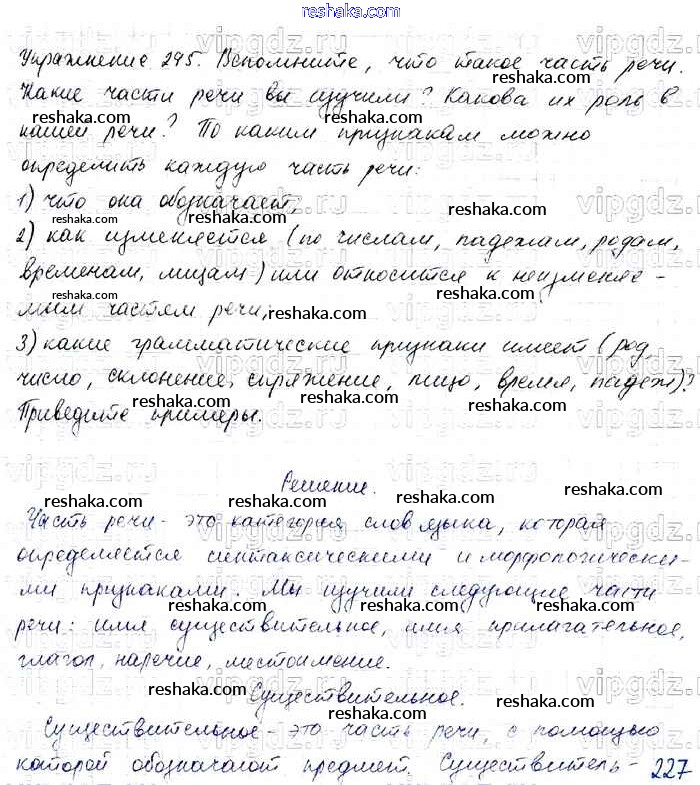 reshaka.com
Упражнение 295. Вспомните, что такое часть речи.
Какие части речи вы изучили? Какова их роль в
нашей речи? По каким признакам можно
определить каждую часть речи:
1) что она обозначает,
2) как изменяется (по числам, падежам, родам,
временам, лицам) или относится к неизменяе-
мым частям речи;
3) какие грамматические признаки имеет (род,
число, склонение, спряжение, лицо, время, падеж)?
Приведите примеры.
Решение.
Часть речи - это категория слов языка, которая
определяется синтаксическими и морфологически-
ми признаками. Мы изучили следующие части
речи: имя существительное, имя прилагательное,
глагол, наречие, местоимение.
Существительное.
Существительное - это часть речи, с помощью
которой обозначают предмет. Существитель-
227